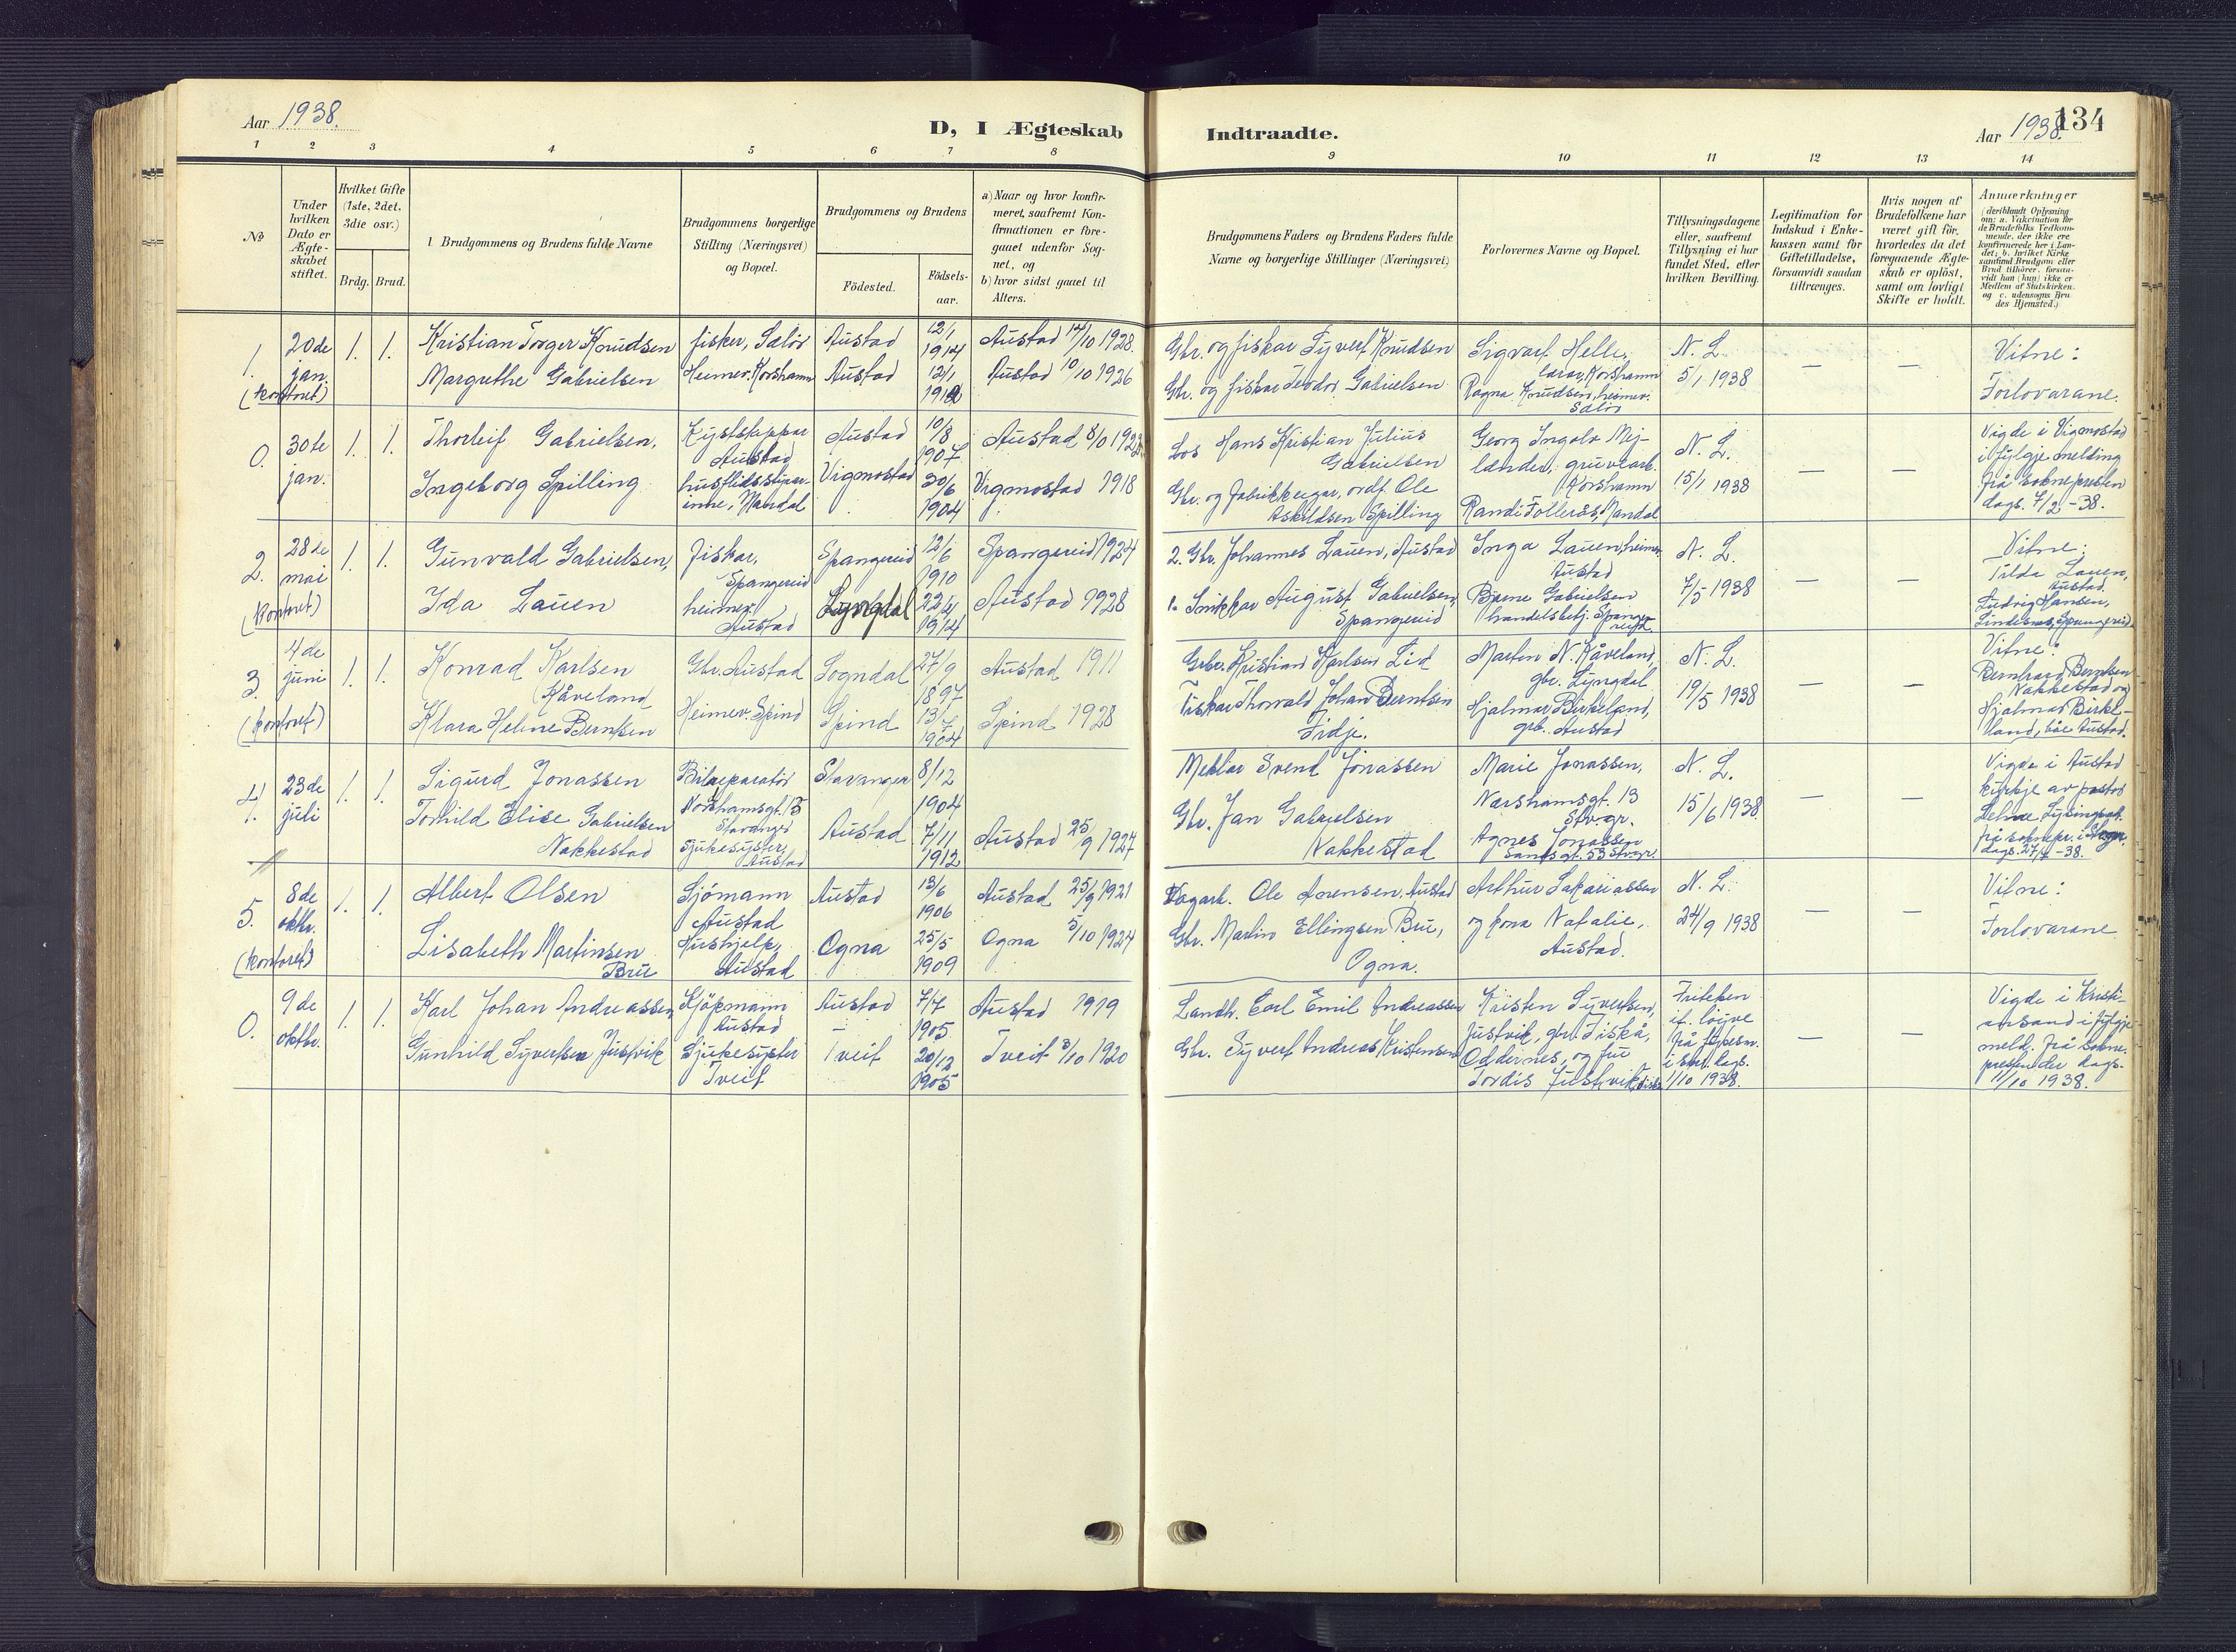 Aar 1938.
D, I Ægteskab
Indtraadte.
Aar 1938.
134
1 2 3 4 5 6 7 8 9 10 11 12 13 14
No
Under
hvilken
Dato er
Ægte-
skabet
stiftet.
Hvilket Gifte
(1ste, 2det,
3die osv.)
Brdg. Brud.
Brudgommens og Brudens fulde Navne
Brudgommens borgerlige
Stilling (Næringsvei)
og Bopæl.
Brudgommens og Brudens
Födested.
Födsels-
aar.
a) Naar og hvor konfir-
meret, saafremt Kon-
firmationen er fore-
gaaet udenfor Sog-
net, og
b) hvor sidst gaaet til
Alters.
Brudgommens Faders og Brudens Faders fulde
Navne og borgerlige Stillinger (Næringsvei)
Forlovernes Navne og Bopæl.
Tillysningsdagene
eller, saafremt
Tillysning ei har
fundet Sted, efter
hvilken Bevilling.
Legitimation for
Indskud i Enke-
kassen samt for
Giftetilladelse,
forsaavidt saadan
tiltrænges.
Hvis nogen af
Brudefolkene har
været gift för,
hvorledes da det
foregaaende Ægte-
skab er oplöst,
samt om lovligt
Skifte er holdt.
Anmærkninger
(deriblandt Oplysning
om: a. Vakcination for
de Brudefolks Vedkom-
mende, der ikke ere
konfirmerede her i Lan-
det; b. hvilket Kirke
samfund Brudgom eller
Brud tilhörer, forsaa-
vidt han (hun) ikke er
Medlem af Statskirken.
og c. udensogns Bru
des Hjemsted.)
1.
20de
jan.
(kontoret)
1. 1.
Kristian Torger Knudsen
Margrethe Gabrielsen
fisker, Selör
Heimev. Korshamn
Austad
Austad
12/1
1914
12/1
1912
Austad 14/10 1928.
Austad 10/10 1926
Gbr. og fiskar Syvert Knudsen
Gbr. og fiskar Teodor Gabrielsen
Sigvart Helle,
lærar, Korshamn
Ragna Knudsen, heimev.
Selör
N. L.
5/1 1938
— —
Vitne:
Forlovarane.
0.
30te
jan.
1. 1.
Thorleif Gabrielsen,
Ingeborg Spilling
Kystskippar
Austad
husflidsstyrar-
inne, Mandal
Austad
Vigmostad
10/8
1907
30/6
1904
Austad
Vigmostad 1918
Los Hans Kristian Julius
Gabrielsen
Gbr. og fabrikkeigar, ordf. Ole
Askildsen Spilling
Georg Ingolv Mej-
lænder, gruvearb.
Korshamn
Randi Follerås, Mandal
N. L.
15/1 1938
— —
Vigde i Vigmostad
i fylgje melding
frå sokneprestens
dags. 7/2 -38.
2.
28de
mai
(kontoret)
1. 1.
Gunvald Gabrielsen,
Ida Lauen
Fiskar,
Spangereid
heimev.
Austad
Spangereid
Lyngdal
12/6
1910
22/4
1914
Spangereid 1924
Austad 1928
2. Gbr. Johannes Lauen, Austad
1. Snikkar August Gabrielsen,
Spangereid
Inga Lauen, heimev.
Austad
Bjarne Gabrielsen
handelsbetj. Spange-
reid
N. L.
7/5 1938
— —
Vitne:
Tilda Lauen,
Austad.
Ludvig Hansen,
Lindesnes, Spangereid.
3.
4de
juni
(kontoret)
1. 1.
Konrad Karlsen
Kåveland
Klara Helene Berntsen
Gbr. Austad
Heimev. Spind
Sogndal
Spind
27/9
1897
13/7
1904
Austad 1911
Spind 1928
Gbr. Kristian Karlsen Lid
Fiskar Thorvald Johan Berntsen
Fidje.
Marten N. Kåveland,
gbr. Lyngdal
Hjalmar Birkeland,
gbr. Austad
N. L.
19/5 1938
— —
Vitne:
Bernhard Berntsen
Nakkestad og
Hjalmar Birke-
land, båe Austad.
4.
23de
juli
1. 1.
Sigurd Jonassen
Torhild Elise Gabrielsen
Nakkestad
Bilreparatör
Stavanger
sjukesyster,
Austad
Stavanger
Austad
8/12
1904
7/11
1912
Austad 25/9 1927
Meklar Svend Jonassen
Gbr. Jan Gabrielsen
Nakkestad
Marie Jonassen,
13
Stvgr.
Agnes Jonassen
53 Stvgr.
N. L.
15/6 1938.
— —
Vigde i Austad
kyrkje av pastor
Lysingsatt.
frå sokepr. i
dags. 27/7 -38.
5.
8de
oktbr.
(kontoret)
1. 1.
Albert Olsen
Lisabeth Martinsen
Bru
Sjömann
Austad
Hushjelp,
Austad
Austad
Ogna
13/6
1906
25/5
1909
Austad 25/9 1921
Ogna 5/10 1924
Dagarb. Ole Arensen, Austad
Gbr. Martin Ellingsen Bru,
Ogna.
Arthur Sakariassen
og kona Natalie,
Austad.
N. L.
24/9 1938
— —
Vitne:
Forlovarane
0.
9de
oktbr.
1. 1.
Karl Johan Andreassen
Gunhild Syvertsen Justvik
Kjöpmann
Austad
Sjukesyster
Tveit
Austad
Tveit
7/7
1905
20/12
1905
Austad 1919
Tveit 3/10 1920
Landh. Carl Emil Andreassen
Gbr. Syvert Andreas Kristensen
Kristen Syvertsen,
Justvik, gbr. Fiskå,
Oddernes, og fru
Tordis Justvik,
if. løyve
frå
dags.
1/10 1938.
— —
Vigde i Kristi-
ansand i fylgje
meld. frå sokne-
presten der dags.
11/10 1938.